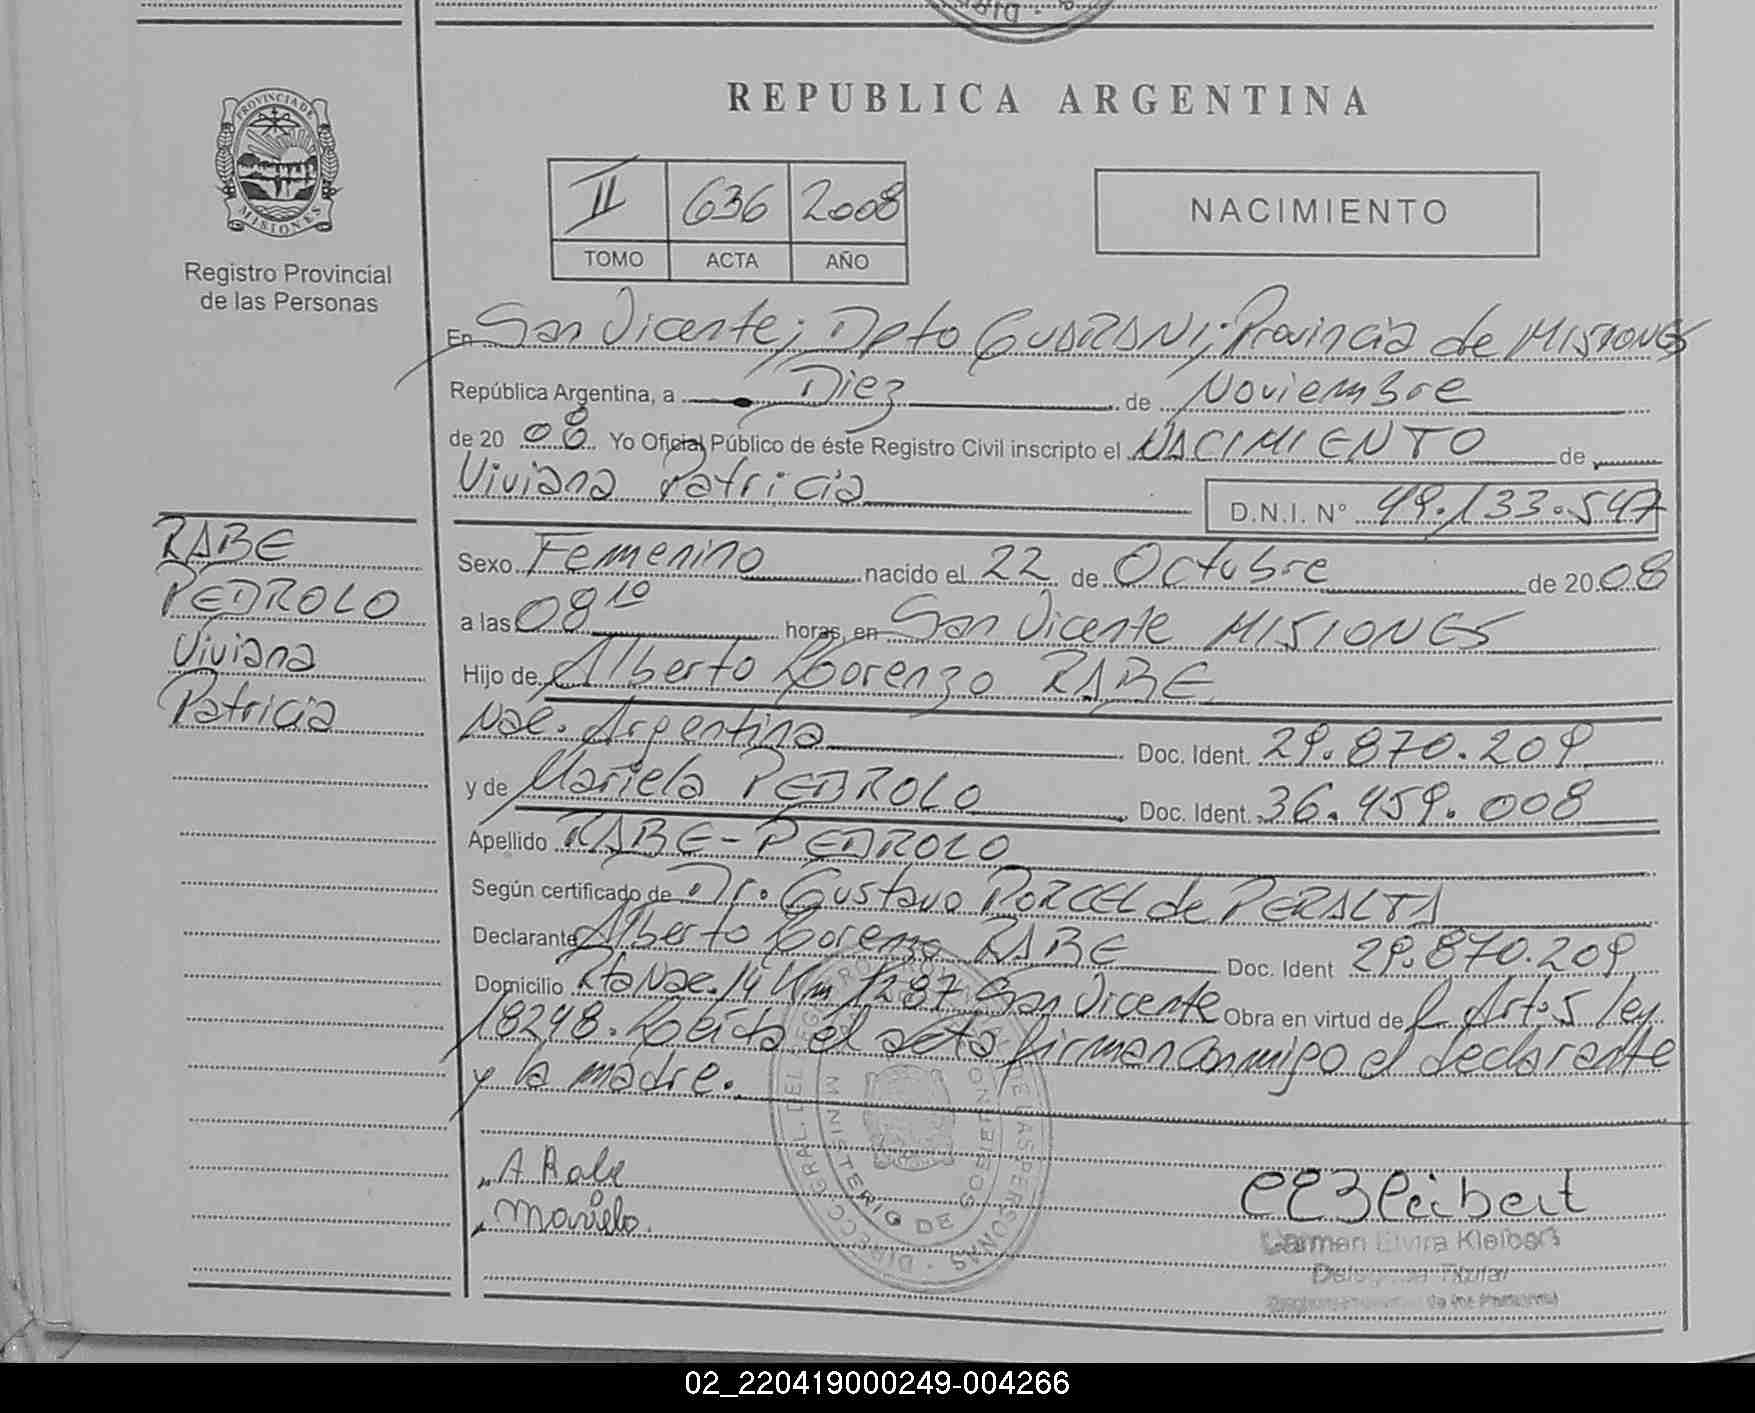 REPUBLICA ARGENTINA
PROVINCIA DE
MISIONES
Registro Provincial
de las Personas
II 636 2008
TOMO ACTA AÑO
NACIMIENTO
En San Vicente; Dpto GUARANI; Provincia de MISIONES
República Argentina, a Diez de Noviembre
de 20 08 Yo Oficial Público de éste Registro Civil inscripto el NACIMIENTO de
Viviana Patricia
D.N.I. Nº 49.133.547
RABE
PEDROLO
Viviana
Patricia
Sexo Femenino nacido el 22 de Octubre de 20 08
a las 08 10 horas, en San Vicente MISIONES
Hijo de Alberto Lorenzo RABE
Nac. Argentina Doc. Ident. 29.870.209
y de Mariela PEDROLO Doc. Ident. 36.459.008
Apellido RABE-PEDROLO
Según certificado de Dr. Gustavo PORCEL de PERALTA
Declarante Alberto Lorenzo RABE Doc. Ident 29.870.209
Domicilio Rta Nac. 14 Km 1287 San Vicente Obra en virtud de Art. 5 ley
18248. Leída el acta firman conmigo el declarante
y la madre.
A. Rabe
Mariela.
Carmen Elvira Kleibert
Titular
DIRECC. GRAL. DEL REGISTRO DE LAS PERSONAS
MINISTERIO DE
02_220419000249-004266